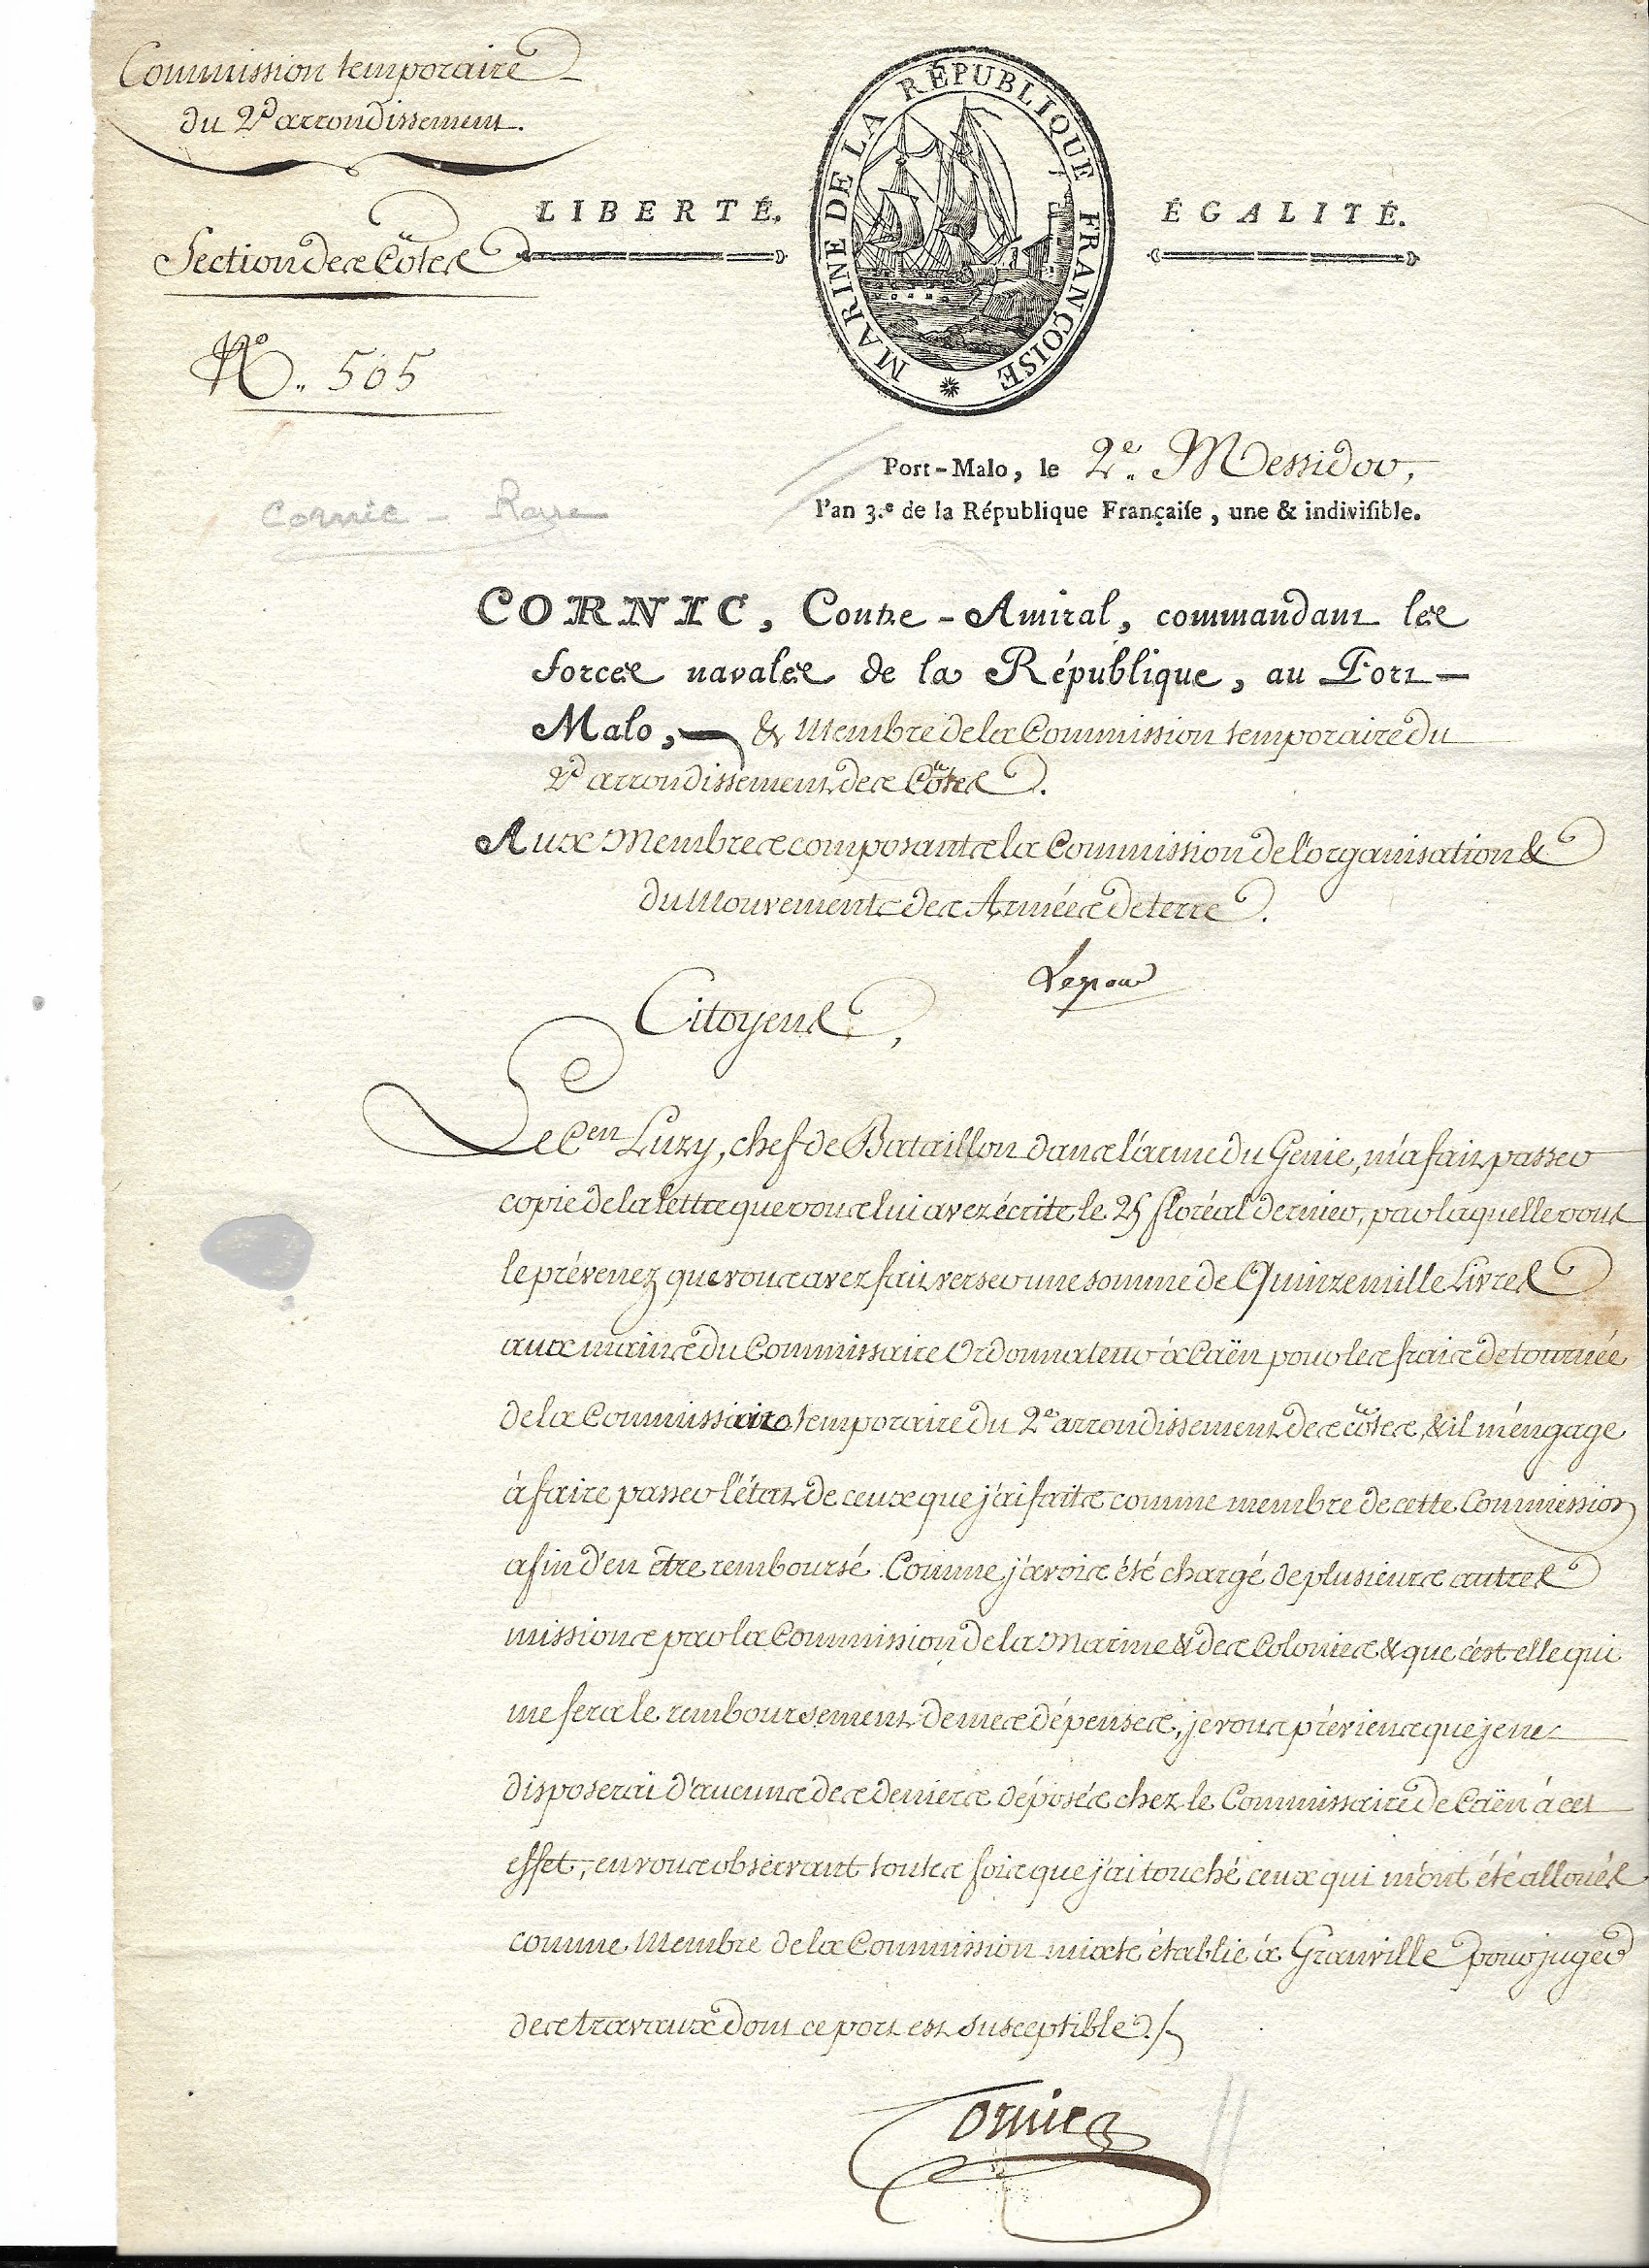 Commission temporaire
du 2d arrondissement.
Section des Côtes
No. 505
LIBERTÉ,
MARINE DE LA RÉPUBLIQUE FRANÇOISE
ÉGALITÉ.
Port-Malo, le 2e. Messidor,
l'an 3.e de la République Françaiſe, une & indiviſible.
Cornic - Rare
CORNIC, Contre-Amiral, commandant les
forces navales de la République, au Port-
Malo, & Membre de la Commission temporaire du
2d arrondissement des Côtes.
Aux Membres composants la Commission de l'organisation &
du Mouvement des Armées de terre.
Citoyens,
Le Cen Luzy, chef de Bataillon dans l'arme du Genie, m'a fait passer
copie de la lettre que vous lui avez écrite le 25 floréal dernier, par laquelle vous
le prévenez que vous avez fait verser une somme de Quinze mille Livres
aux mains du Commissaire Ordonnateur à Caën pour les frais de tournée
de la Commissaire temporaire du 2e arrondissement des côtes, & il m'engage
à faire passer l'état de ceux que j'ai faits comme membre de cette Commission
afin d'en être remboursé. Comme j'avois été chargé de plusieurs autres
missions par la Commission de la Marine & des Colonies & que c'est elle qui
me fera le remboursement de mes dépenses, je vous préviens que je ne
disposerai d'aucuns des deniers déposés chez le Commissaire de Caën à cet
effet, en vous observant toutes fois que j'ai touché ceux qui m'ont été alloués
comme Membre de la Commission mixte établie à Granville pour juger
des travaux dont ce port est susceptible ./.
Cornic